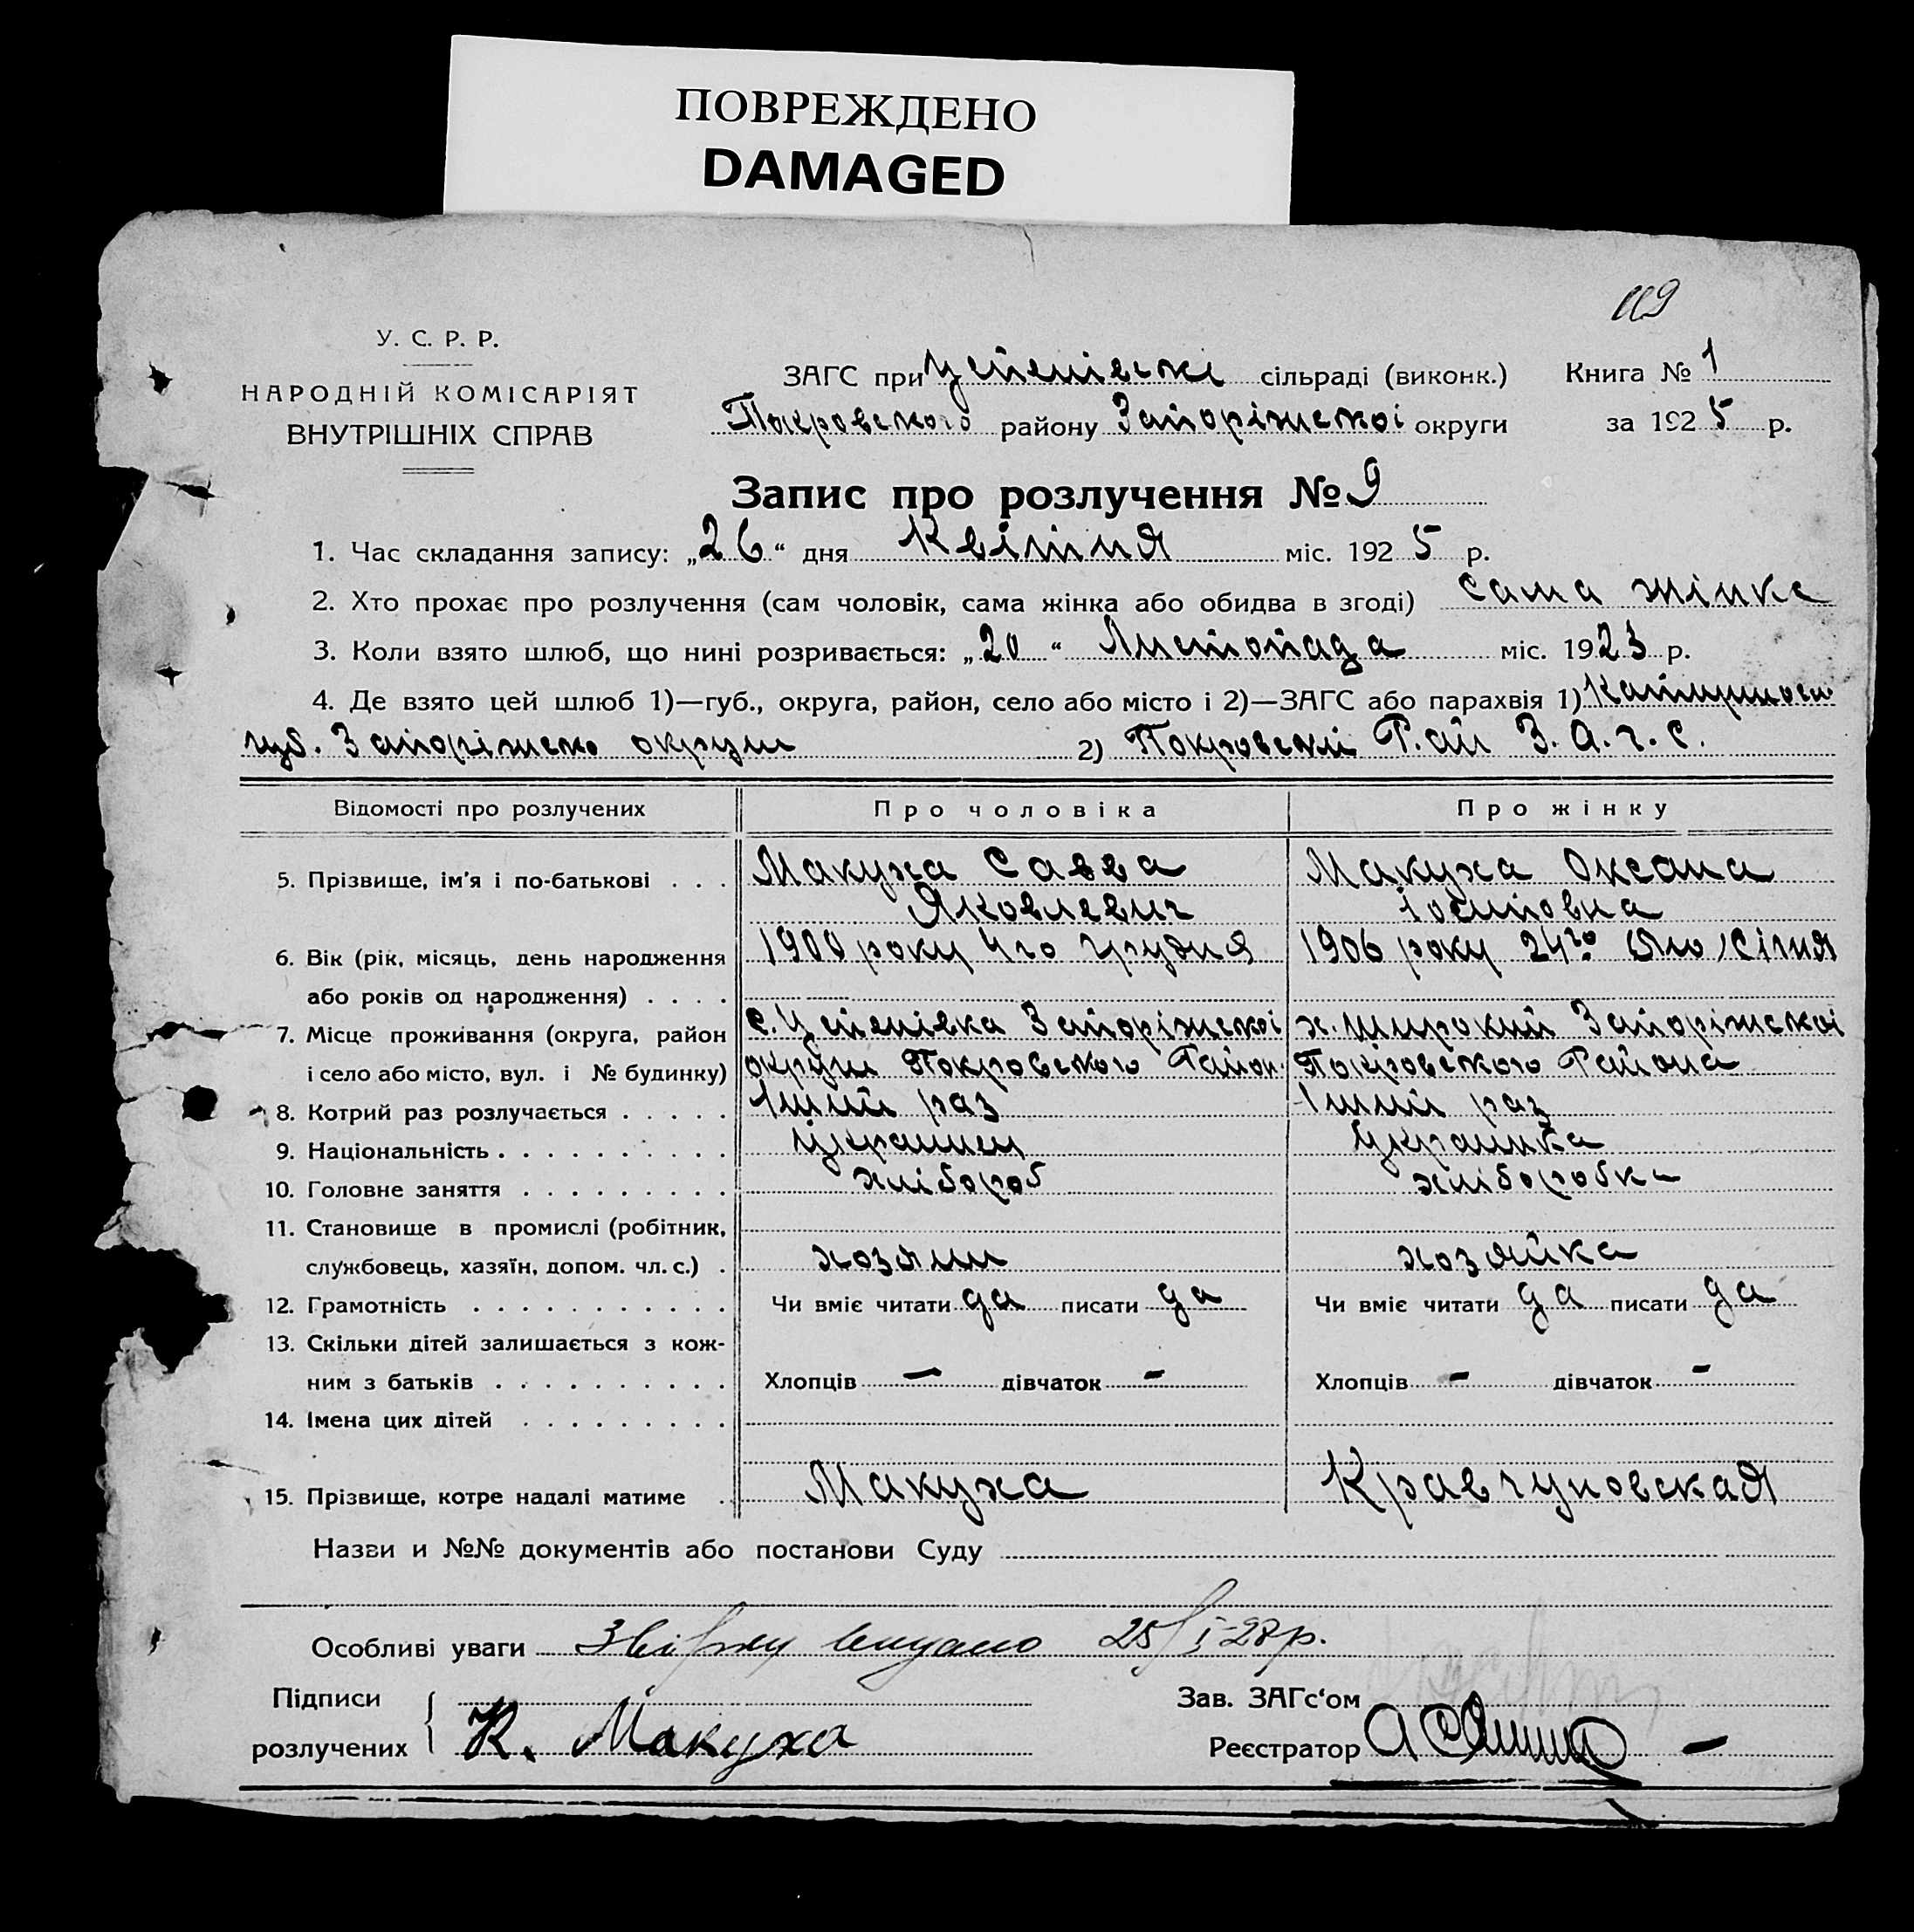 ПОВРЕЖДЕНО
DAMAGED
119
У. С. Р. Р.
НАРОДНІЙ КОМІСАРІЯТ
ВНУТРІШНІХ СПРАВ
ЗАГС при Успенівські сільраді (виконк.) Книга № 1
Покровського району Запоріжської округи за 1925 р.
Запис про розлучення № 9
1. Час складання запису: „26“ дня Квітня міс. 1925 р.
2. Хто прохає про розлучення (сам чоловік, сама жінка або обидва в згоді) сама жінка
3. Коли взято шлюб, що нині розривається: „20“ Листопада міс. 1923 р.
4. Де взято цей шлюб 1)—губ., округа, район, село або місто і 2)—ЗАГС або парахвія 1)
губ. Запоріжско округи 2) Покровский Р.ай З. А. г. С.
Відомості про розлучених Про чоловіка Про жінку
5. Прізвище, ім'я і по-батькові . . . Макуха Савва Макуха Оксана
Яковлевич Іосиповна
6. Вік (рік, місяць, день народження 1900 року 4го Грудня 1906 року 24го
або років од народження) . . . .
7. Місце проживання (округа, район с. Успенівка Запоріжскої х. широкий Запоріжскої
і село або місто, вул. і № будинку) округи Покровського Район. Покровського Района
8. Котрий раз розлучається . . . . . 1ший раз 1ший раз
9. Національність . . . . . . . . . . Украинец Украинка
10. Головне заняття . . . . . . . . . хлібороб хліборобка
11. Становище в промислі (робітник,
службовець, хазяїн, допом. чл. с.) . хозяин хозяйка
12. Грамотність . . . . . . . . . . . Чи вміє читати да писати да Чи вміє читати да писати да
13. Скільки дітей залишається з кож-
ним з батьків . . . . . . . . . . Хлопців — дівчаток - Хлопців - дівчаток -
14. Імена цих дітей . . . . . . . . .
15. Прізвище, котре надалі матиме . . Макуха Кравчуновская
Назви и №№ документів або постанови Суду
Особливі уваги Звірку видано 25/I-28 р.
Підписи Зав. ЗАГс‘ом
розлучених К. Макуха Реєстратор